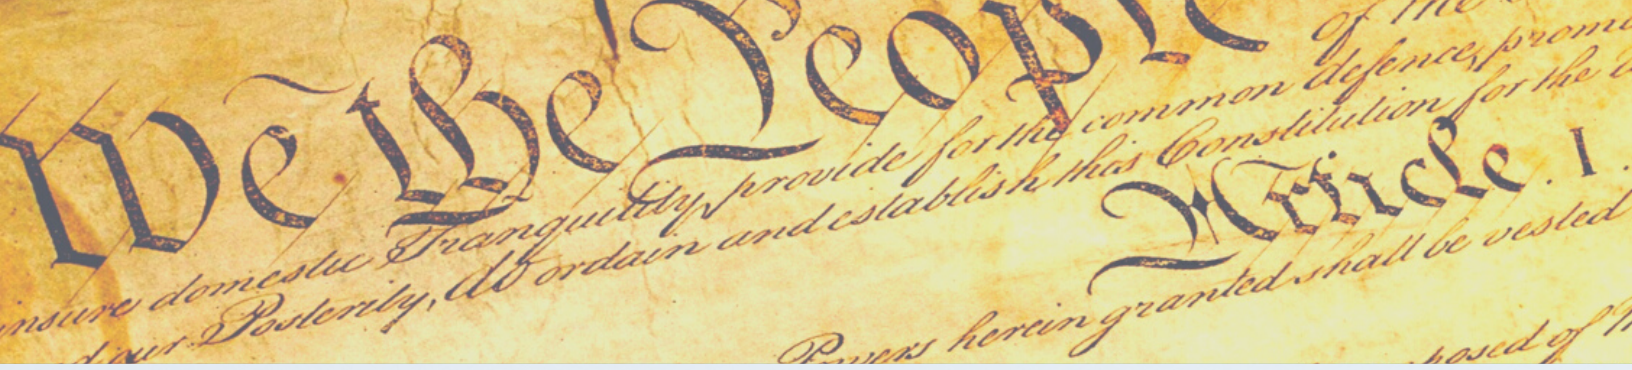 We the People
of the
insure domestic Tranquility, provide for the common defence, promo
d our Posterity, do ordain and establish this Constitution for the
Article. I.
Powers herein granted shall be vested
posed of